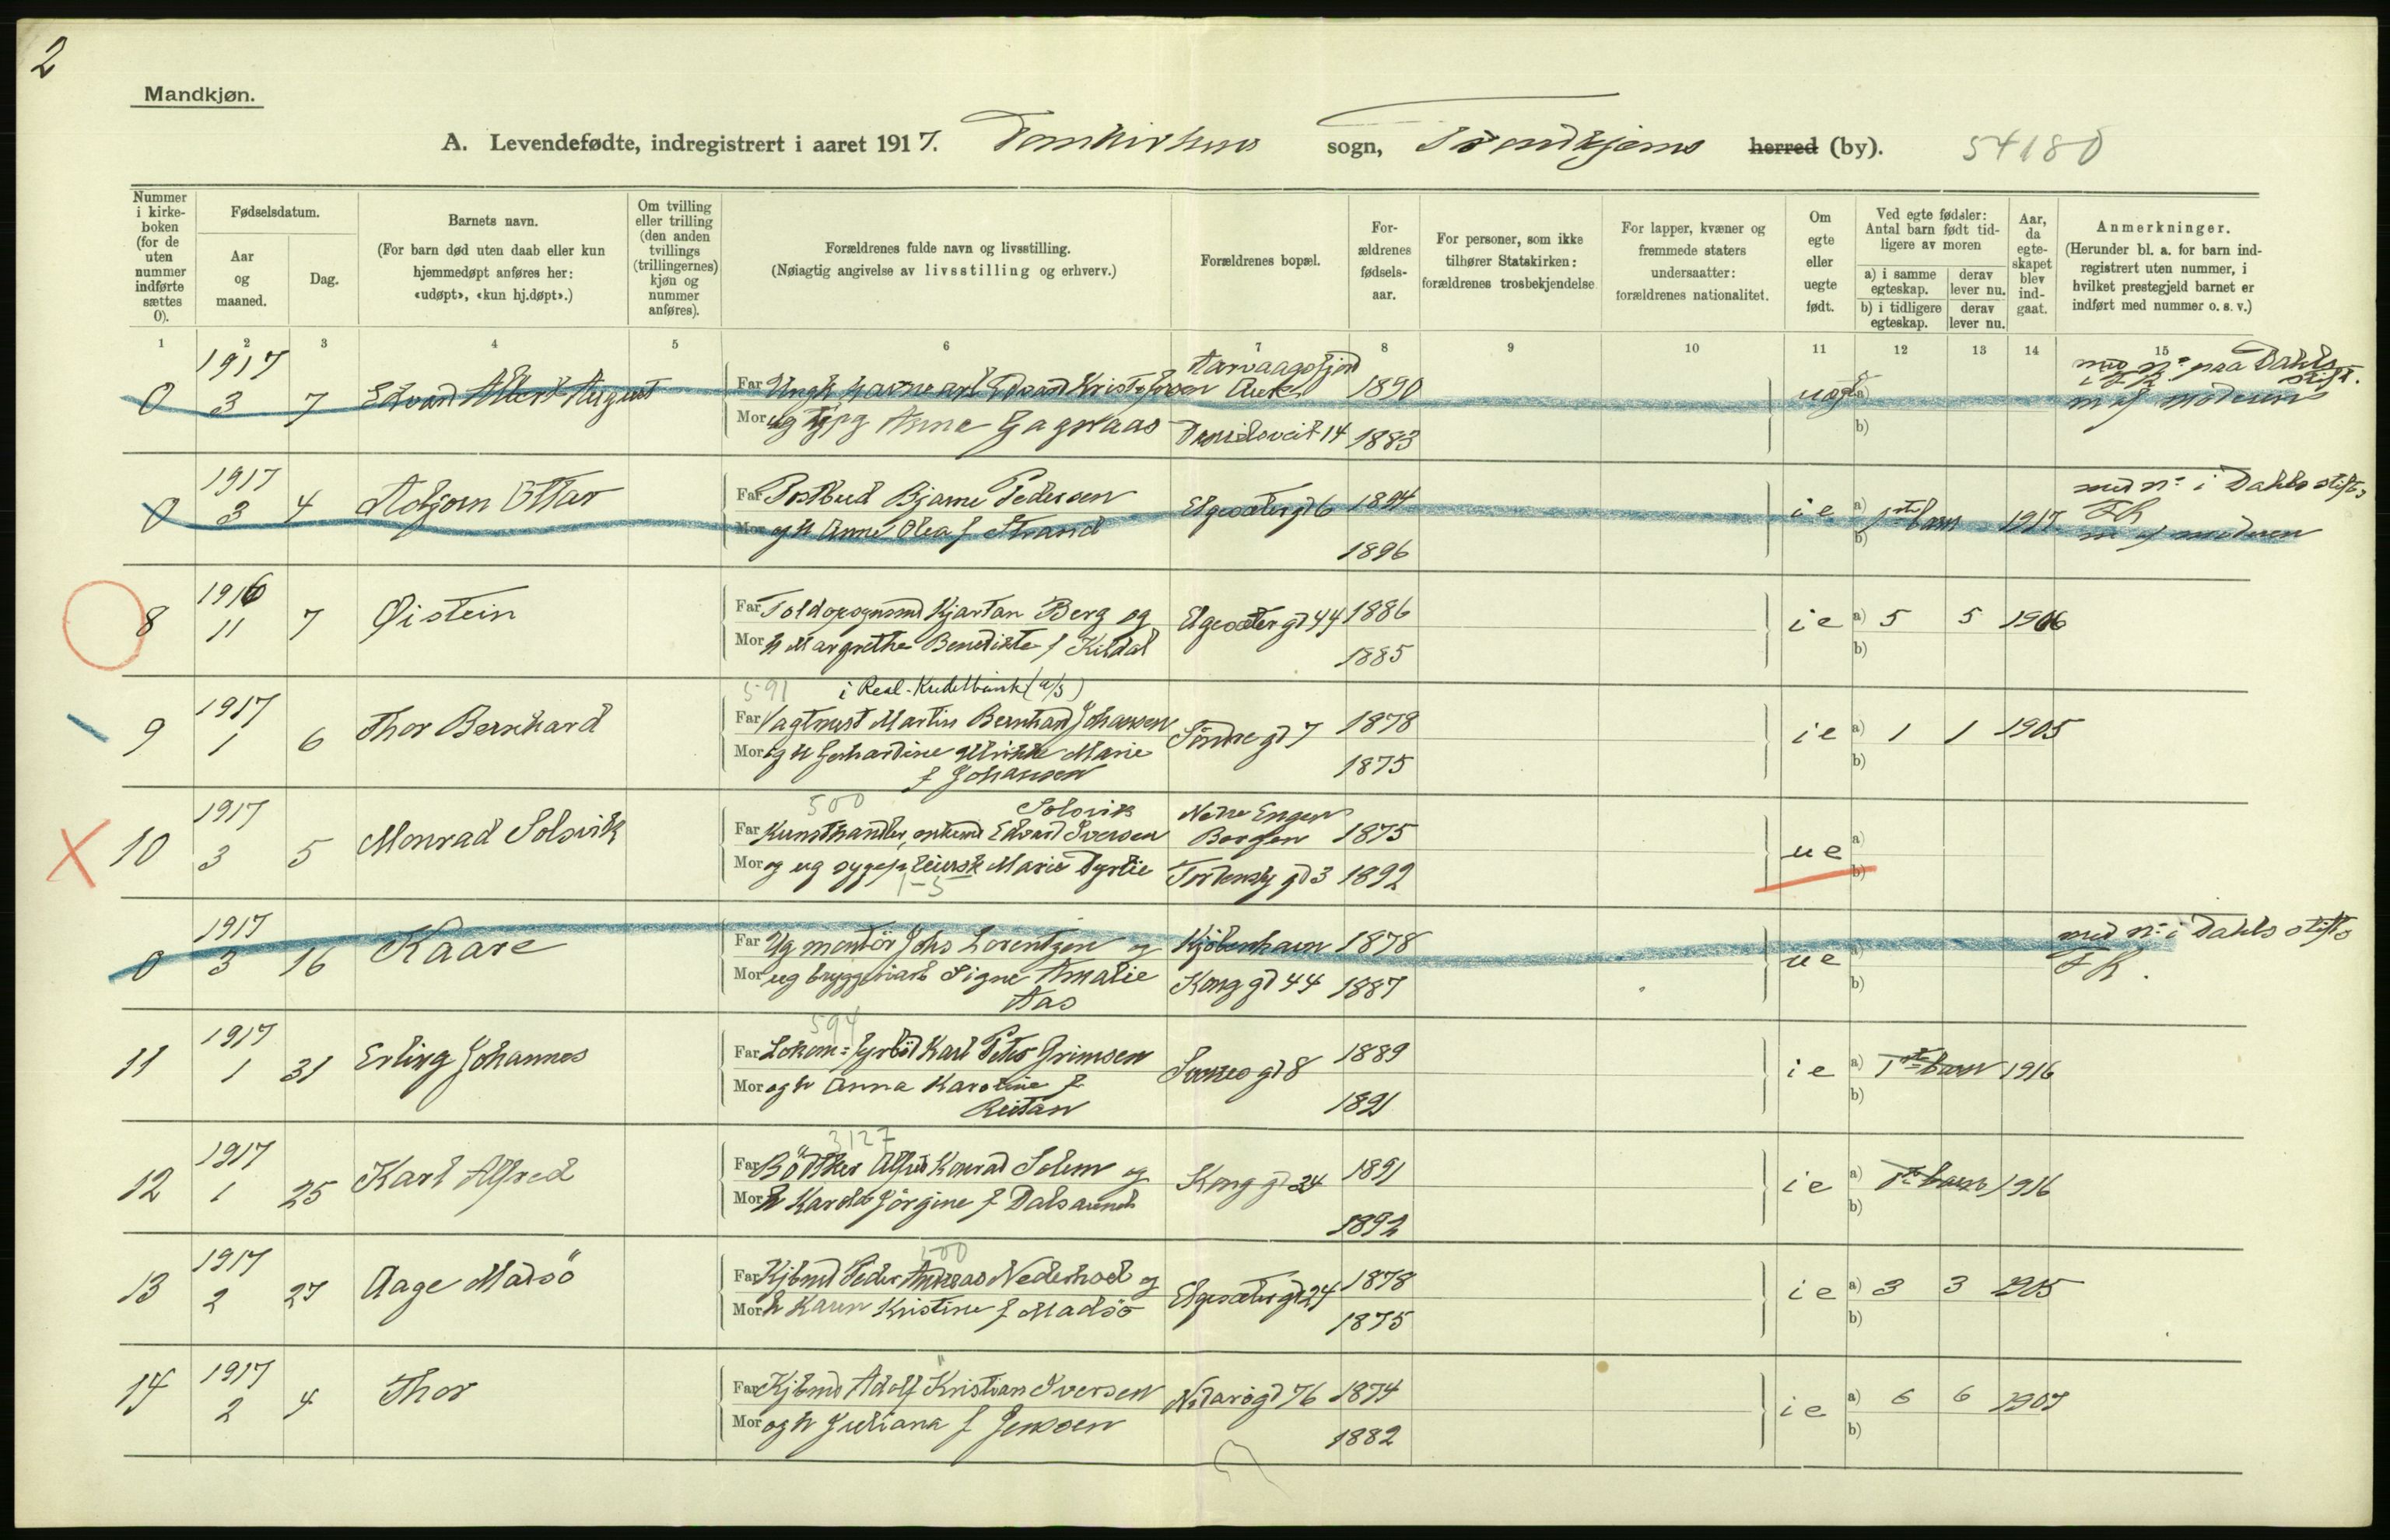 2
Mandkjøn.
A. Levendefødte, indregistrert i aaret 1917. Domkirkens sogn, Trondhjems herred (by). 54180
Nummer i kirke-boken (for de uten nummer indførte sættes 0).
Fødselsdatum.
Aar og maaned.
Dag.
Barnets navn.
(For barn død uten daab eller kun hjemmedøpt anføres her: «udøpt», «kun hj.døpt».)
Om tvilling eller trilling (den anden tvillings (trillingernes) kjøn og nummer anføres).
Forældrenes fulde navn og livsstilling.
(Nøiagtig angivelse av livsstilling og erhverv.)
Forældrenes bopæl.
For-ældrenes fødsels-aar.
For personer, som ikke tilhører Statskirken: forældrenes trosbekjendelse
For lapper, kvæner og fremmede staters undersaatter: forældrenes nationalitet.
Om egte eller uegte født.
Ved egte fødsler: Antal barn født tid-ligere av moren
a) i samme egteskap. derav lever nu.
b) i tidligere egteskap. derav lever nu.
Aar, da egte-skapet blev ind-gaat.
Anmerkninger.
(Herunder bl. a. for barn ind-registrert uten nummer, i hvilket prestegjeld barnet er indført med nummer o. s. v.)
1 2 3 4 5 6 7 8 9 10 11 12 13 14 15
1917
0 3 7 Edvard Albert August
Far Ungk Edvard Kristofersen 1890
Mor ug Anna Gagnaas 14 1883
a)
b)
med No paa Dahls stift.
m of moderen
1917
0 3 4 Asbjørn Ottar
Far Postbud Bjarne Pedersen Elgesætergt 6 1894
Mor og h Anne Olea f Strand 1896
ie a) 1ste barn 1917
b)
med No i Dahls stifts
FK
m of moderen
1916
8 11 7 Øistein
Far Kjartan Berg og Elgesæter gt 44 1886
Mor h Margrethe Benedikte f Kildal 1885
ie a) 5 5 1906
b)
591 i Real-Kreditbank (a/s)
1917
9 1 6 Thor Bernhard
Far Vagtmest Martin Bernhard Johansen Söndregt 7 1878
Mor og h Gerhardine Ulrikke Marie f Johansen 1875
ie a) 1 1 1905
b)
500
1917
10 3 5 Monrad Solovik
Far Kunsthandler, Edvard Iversen Solovik Nedre Engen Bergen 1875
Mor og ug sygepleiersk Marie Dyrlie gt 3 1892
1-3
ue a)
b)
1917
0 3 16 Kaare
Far Ug montör Johs Lorentzen og Kjöbenhavn 1878
Mor ug bryggeriarb Signe Amalie Aas Konggt 44 1887
ue a)
b)
med No i Dahls stifts
FK.
594
1917
11 1 31 Erling Johannes
Far Lokom: fyrböd Karl Peter Grimsen gt 8 1889
Mor og h Anna Karoline f Reitan 1891
ie a) 1ste barn 1916
b)
3127
1917
12 1 25 Karl Alfred
Far Bödtker Alfred Konrad Solem og Konggt 24 1891
Mor h Karoline Jörgine f Dalsaunet 1892
ie a) 1ste barn 1916
b)
500
1917
13 2 27 Aage Madsö
Far Kjbmd Peder Andreas Nederhoel og Elgesætergt 24 1878
Mor h Karen Kristine f Madsö 1875
ie a) 3 3 1905
b)
1917
14 2 4 Thor
Far Kjbmd Adolf Kristian Iversen Nidarösgt 76 1874
Mor og h Juliana f Jensen 1882
ie a) 6 6 1907
b)